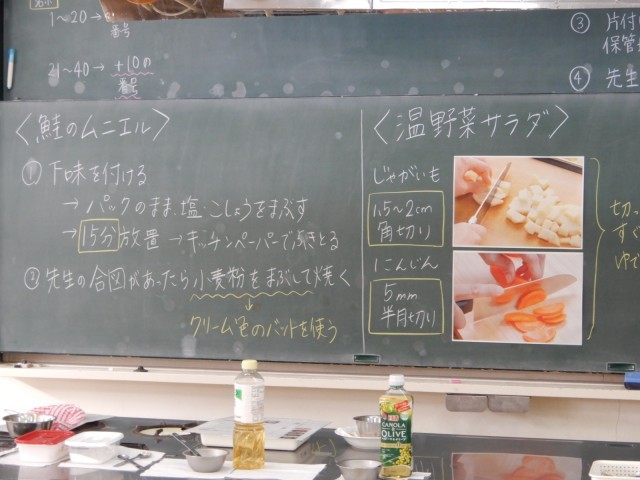 1~20→
番号
21~40→ +10の
番号
③ 片付
保管
④ 先生
〈鮭のムニエル〉
① 下味を付ける
→ パックのまま、塩・こしょうをまぶす
→ 15分 放置 → キッチンペーパーで拭きとる
② 先生の合図があったら小麦粉をまぶして焼く
↓
クリーム色のバットを使う
〈温野菜サラダ〉
じゃがいも
1.5~2cm
角切り
にんじん
5mm
半月切り
切っ
すぐ
ゆで
CANOLA
OLIVE